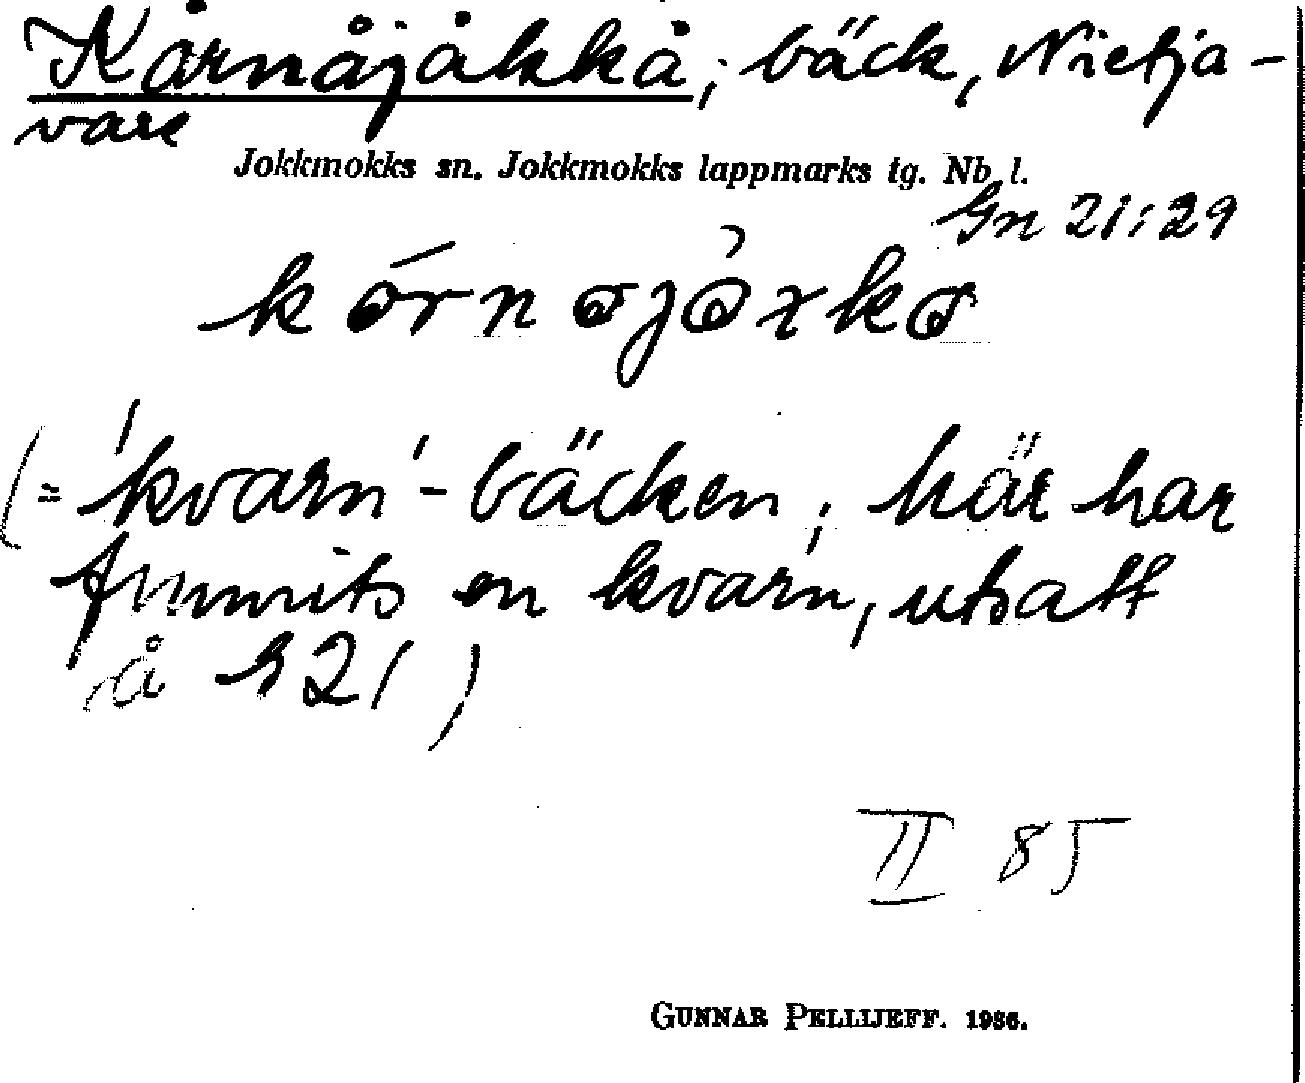 Kårnåjåkkå; bäck, Nietja-
vare
Jokkmokks sn. Jokkmokks lappmarks tg. Nb l.
Gn 21:29
(= 'kvarn'-bäcken; här har
funnits en kvarn, utsatt
å 921)
II 85
GUNNAR PELLIJEFF. 1936.